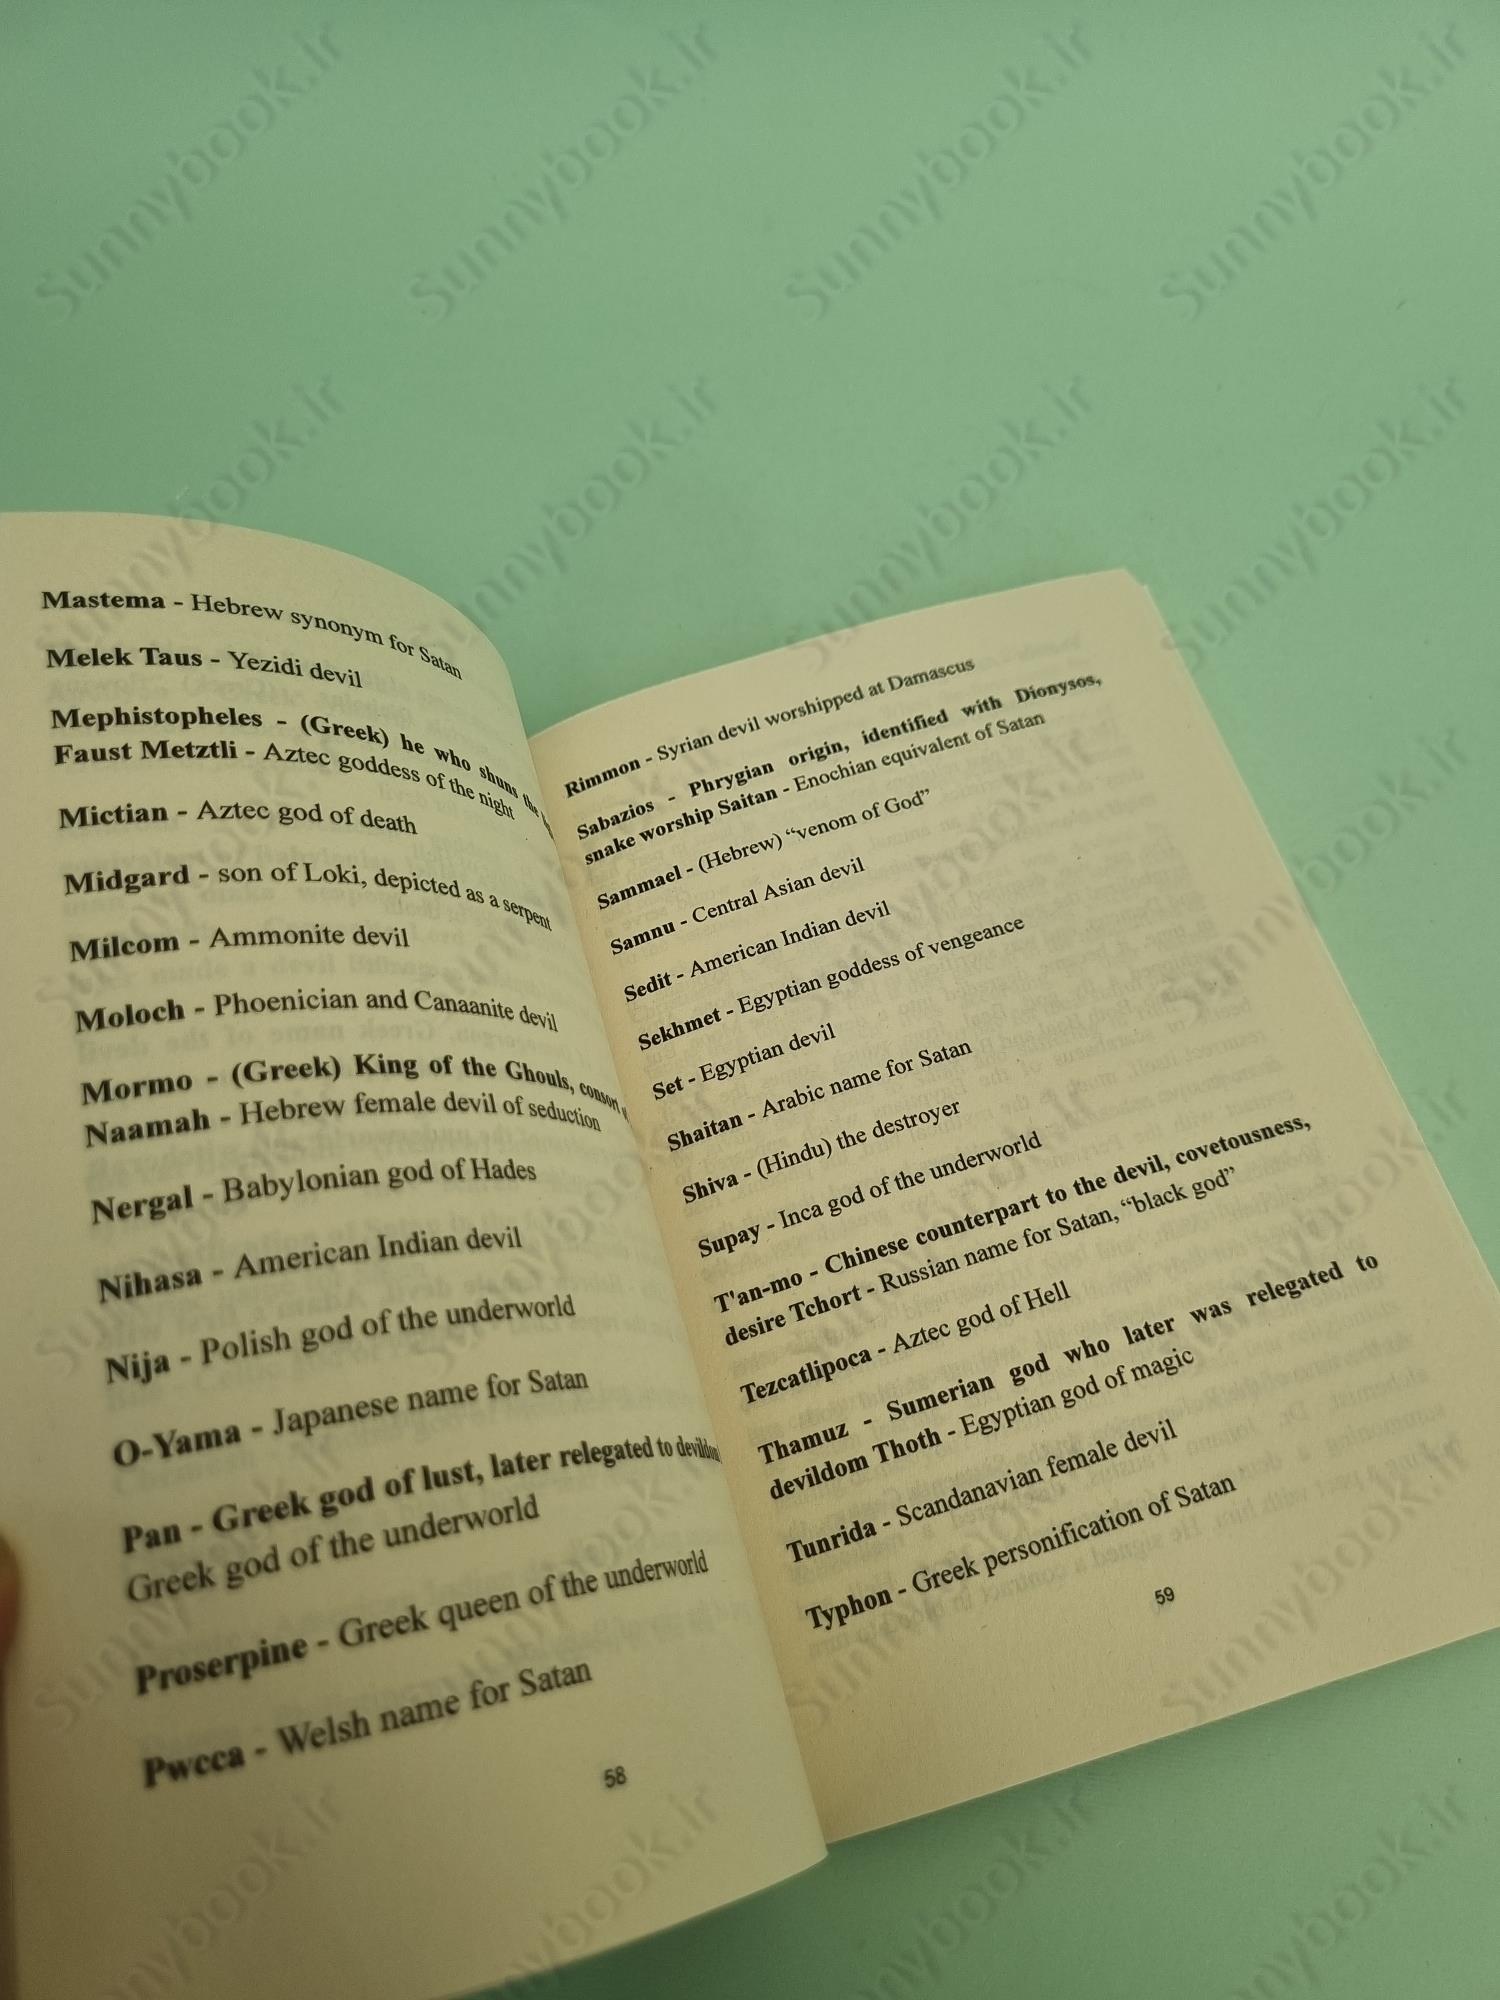 Mastema - Hebrew synonym for Satan
Melek Taus - Yezidi devil
Mephistopheles - (Greek) he who shuns the
Faust Metztli - Aztec goddess of the night
Mictian - Aztec god of death
Midgard - son of Loki, depicted as a serpent
Milcom - Ammonite devil
Moloch - Phoenician and Canaanite devil
Mormo - (Greek) King of the Ghouls, consort
Naamah - Hebrew female devil of seduction
Nergal - Babylonian god of Hades
Nihasa - American Indian devil
Nija - Polish god of the underworld
O-Yama - Japanese name for Satan
Pan - Greek god of lust, later relegated to devildom
Greek god of the underworld
Proserpine - Greek queen of the underworld
Pwcca - Welsh name for Satan
58
Rimmon - Syrian devil worshipped at Damascus
Sabazios - Phrygian origin, identified with Dionysos,
snake worship Saitan - Enochian equivalent of Satan
Sammael - (Hebrew) “venom of God”
Samnu - Central Asian devil
Sedit - American Indian devil
Sekhmet - Egyptian goddess of vengeance
Set - Egyptian devil
Shaitan - Arabic name for Satan
Shiva - (Hindu) the destroyer
Supay - Inca god of the underworld
T'an-mo - Chinese counterpart to the devil, covetousness,
desire Tchort - Russian name for Satan, “black god”
Tezcatlipoca - Aztec god of Hell
Thamuz - Sumerian god who later was relegated to
devildom Thoth - Egyptian god of magic
Tunrida - Scandanavian female devil
Typhon - Greek personification of Satan
59
Sunnybook.ir